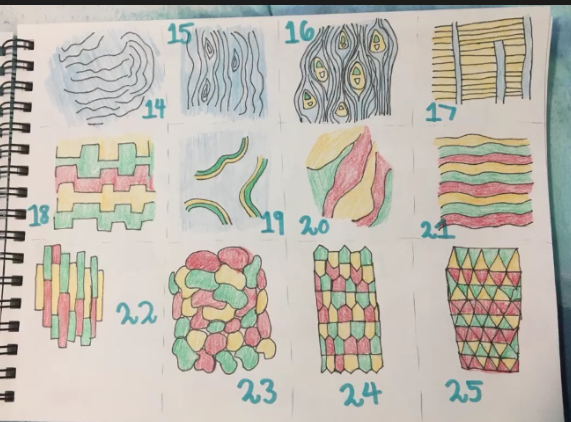 14
15
16
17
18
19
20
21
22
23
24
25